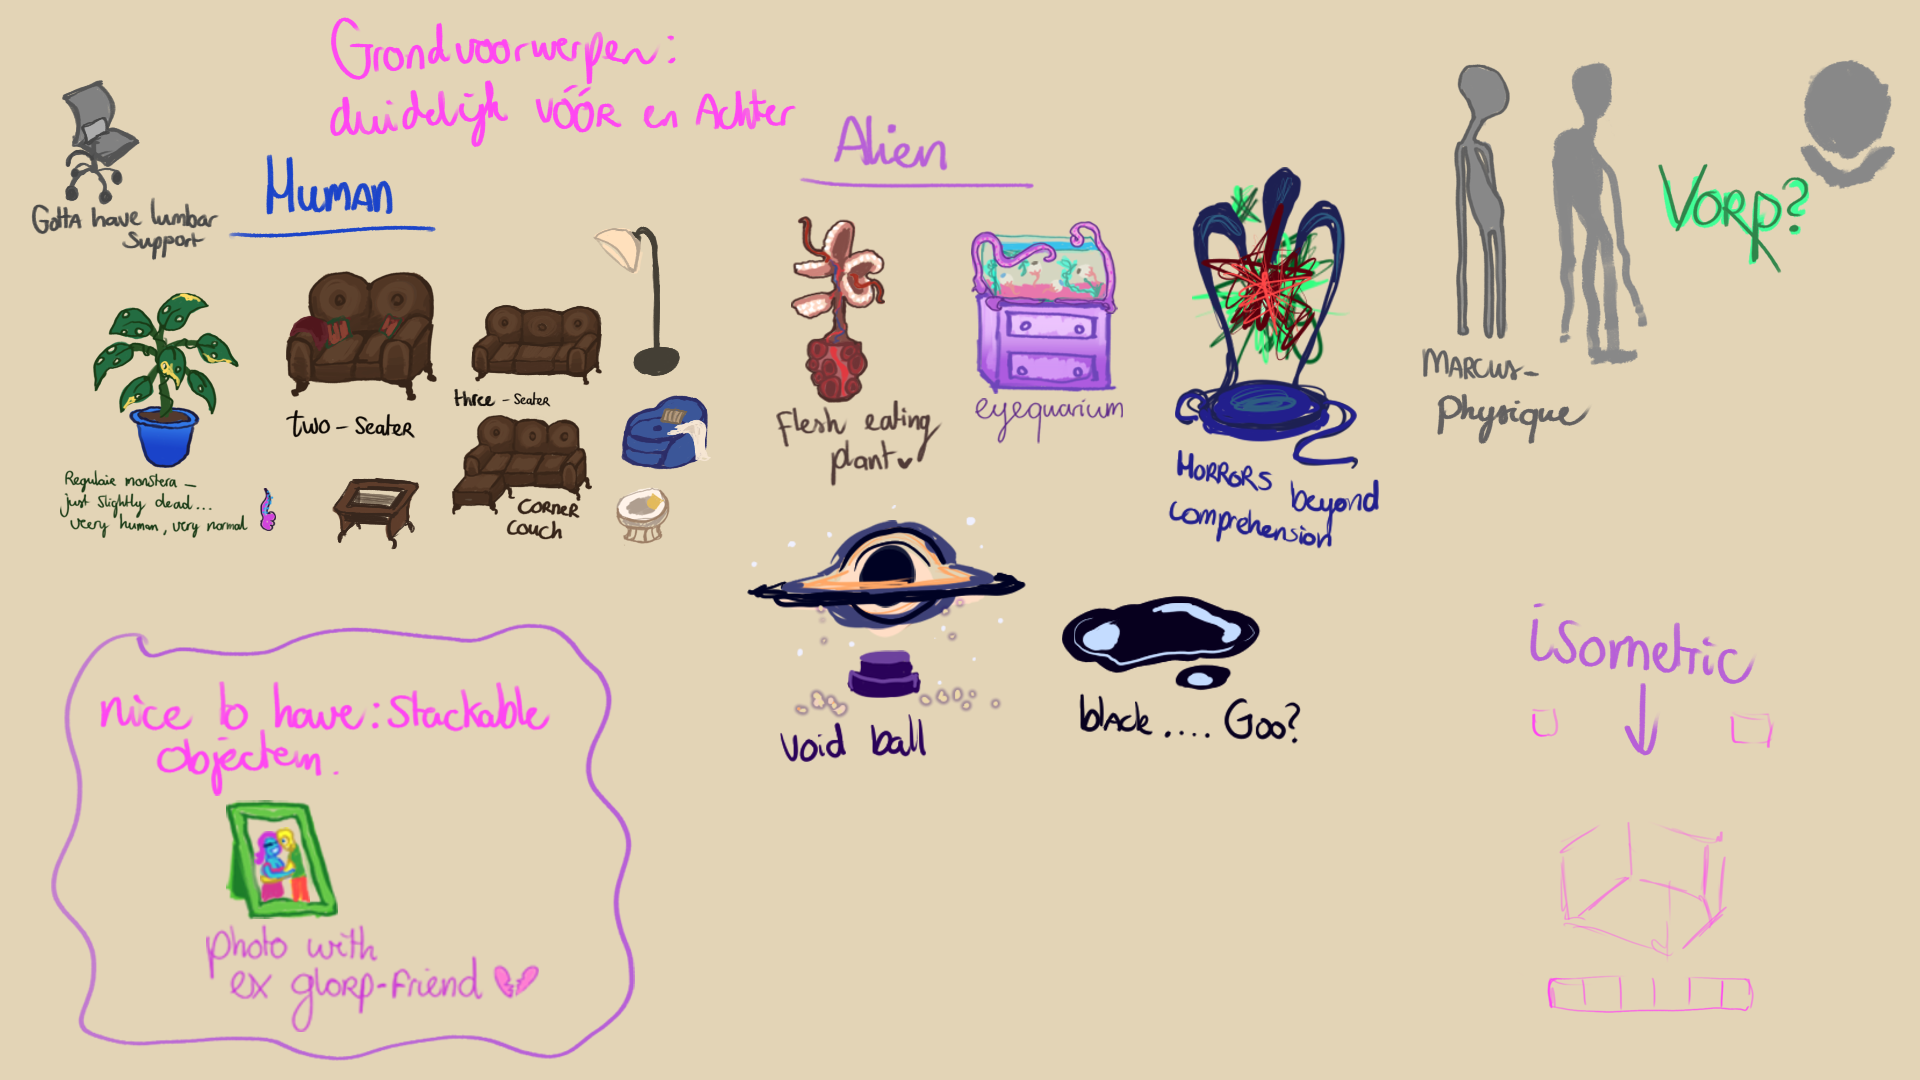 Grondvoorwerpen:
duidelijk vóór en Achter
Gotta have lumbar
Support
Human
Alien
Vorp?
two-Seater
three-Seater
Corner
couch
Regulaire monstera —
just slightly dead...
veery human, very normal
Flesh eating
plant
eyequarium
Horrors beyond
comprehension
Marcus-
Physique
void ball
black.... Goo?
isometric
nice to have: Stackable
objectem.
photo with
ex glorp-friend